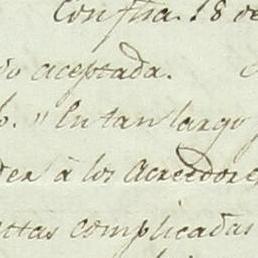 Con fha. 18 de
aceptada.
" En tan largo
der à los Acreedore
ttas complicadas